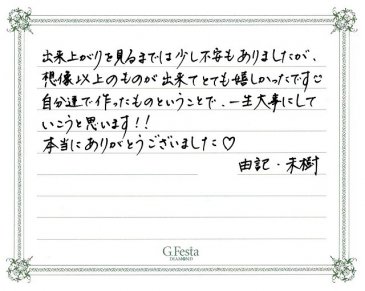 出来上がりを見るまでは少し不安もありましたが、
想像以上のものが出来てとても嬉しかったです☺
自分達で作ったものということで、一生大事にして
いこうと思います!!
本当にありがとうございました♡
由記・未樹
G.Festa
DIAMOND